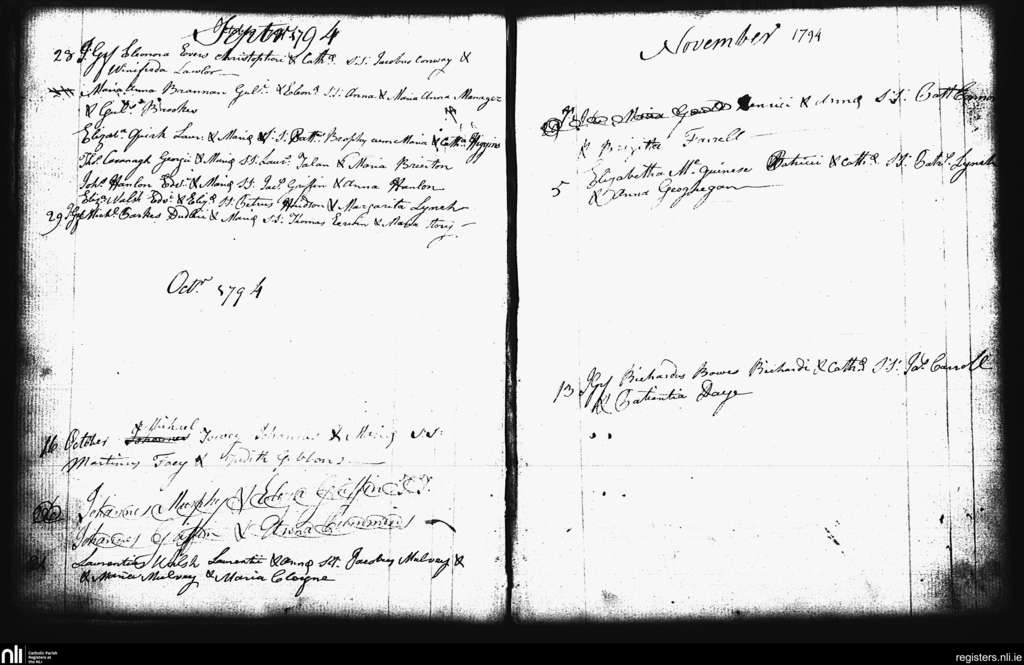 Septr 1794
28 Jn Gf Eleonora Evers Christophori & Cathα SS: Jacobus Conway &
Winifrida Lawlor
Maria Anna Brannan Gulὶ & Elenα SS: Anna & Maria Anna Manager
& Gulὶ Brookes
Elizabα Quirk Laur: & Maria SS: Patt Brophy cum Maria & Cathα Higgins
Ths Cavanagh Georgii & Maria SS: Laur. Talan & Maria Brixton
Johs Hanlon Edvi & Maria SS: Jacs Griffin & Anna Hanlon
Eliza Walsh Edvi & Eliza SS: Petrus Hindson & Margarita Lynch
29 Michl Parkes Dudlii & Maria SS: Thomas & Maria
Octr 1794
16 October Michael
Johannes Johannes & Maria SS:
Martinus Foey & Judith Gibbons
Johannes Murphy Griffin SS.
Johannes Griffin & Anna
Laurentius Walsh Laurentii & Anna SS: Jacobus Mulvay &
& Maria Mulvay & Maria Coleigne
November 1794
Maria Henrici & Anna SS: Patt Cannon
& Brigitta Farrell
5 Elizabetha Mc Guinese Patricii & Cathα SS: Patk. Lynch
& Anna Geoghegan
13 Richardus Bowes Richardi & Cathα SS: Jas. Carroll
& Patientia Daye
nli
Catholic Parish
Registers at
the NLI
registers.nli.ie